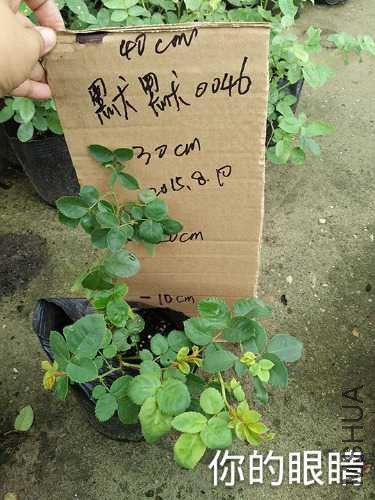 40 cm
默默0046
30 cm
2015.8.10
20cm
-10cm
你的眼睛